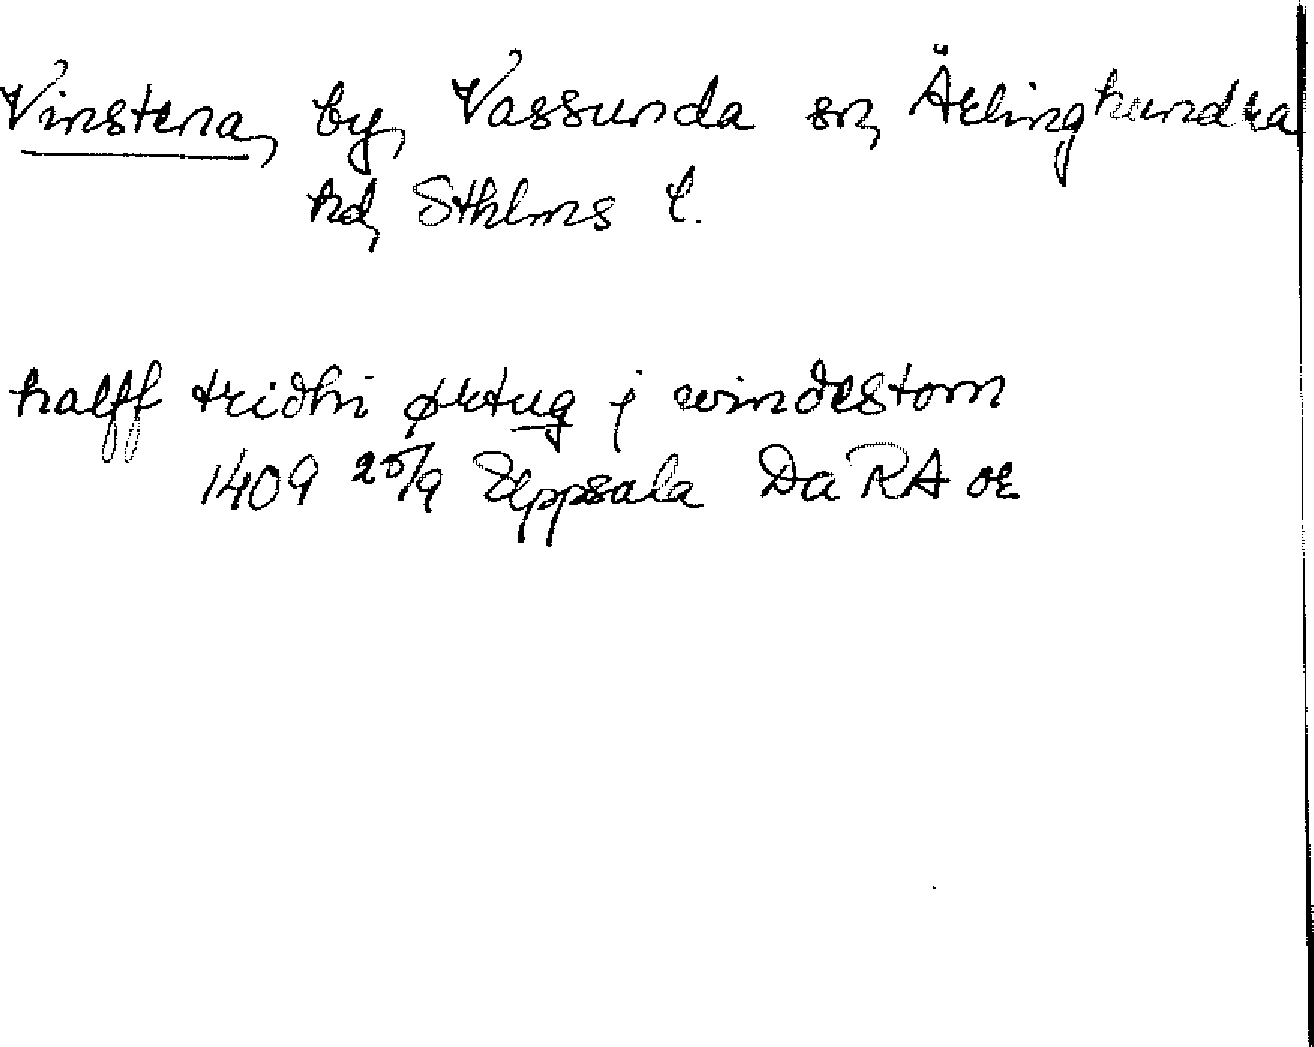 Vinstena, by, Vassunda sn, Ärlinghundra
hd, Sthlms l.
halff tridhi ørtug j windestom
1409 25/9 Uppsala Da RA or